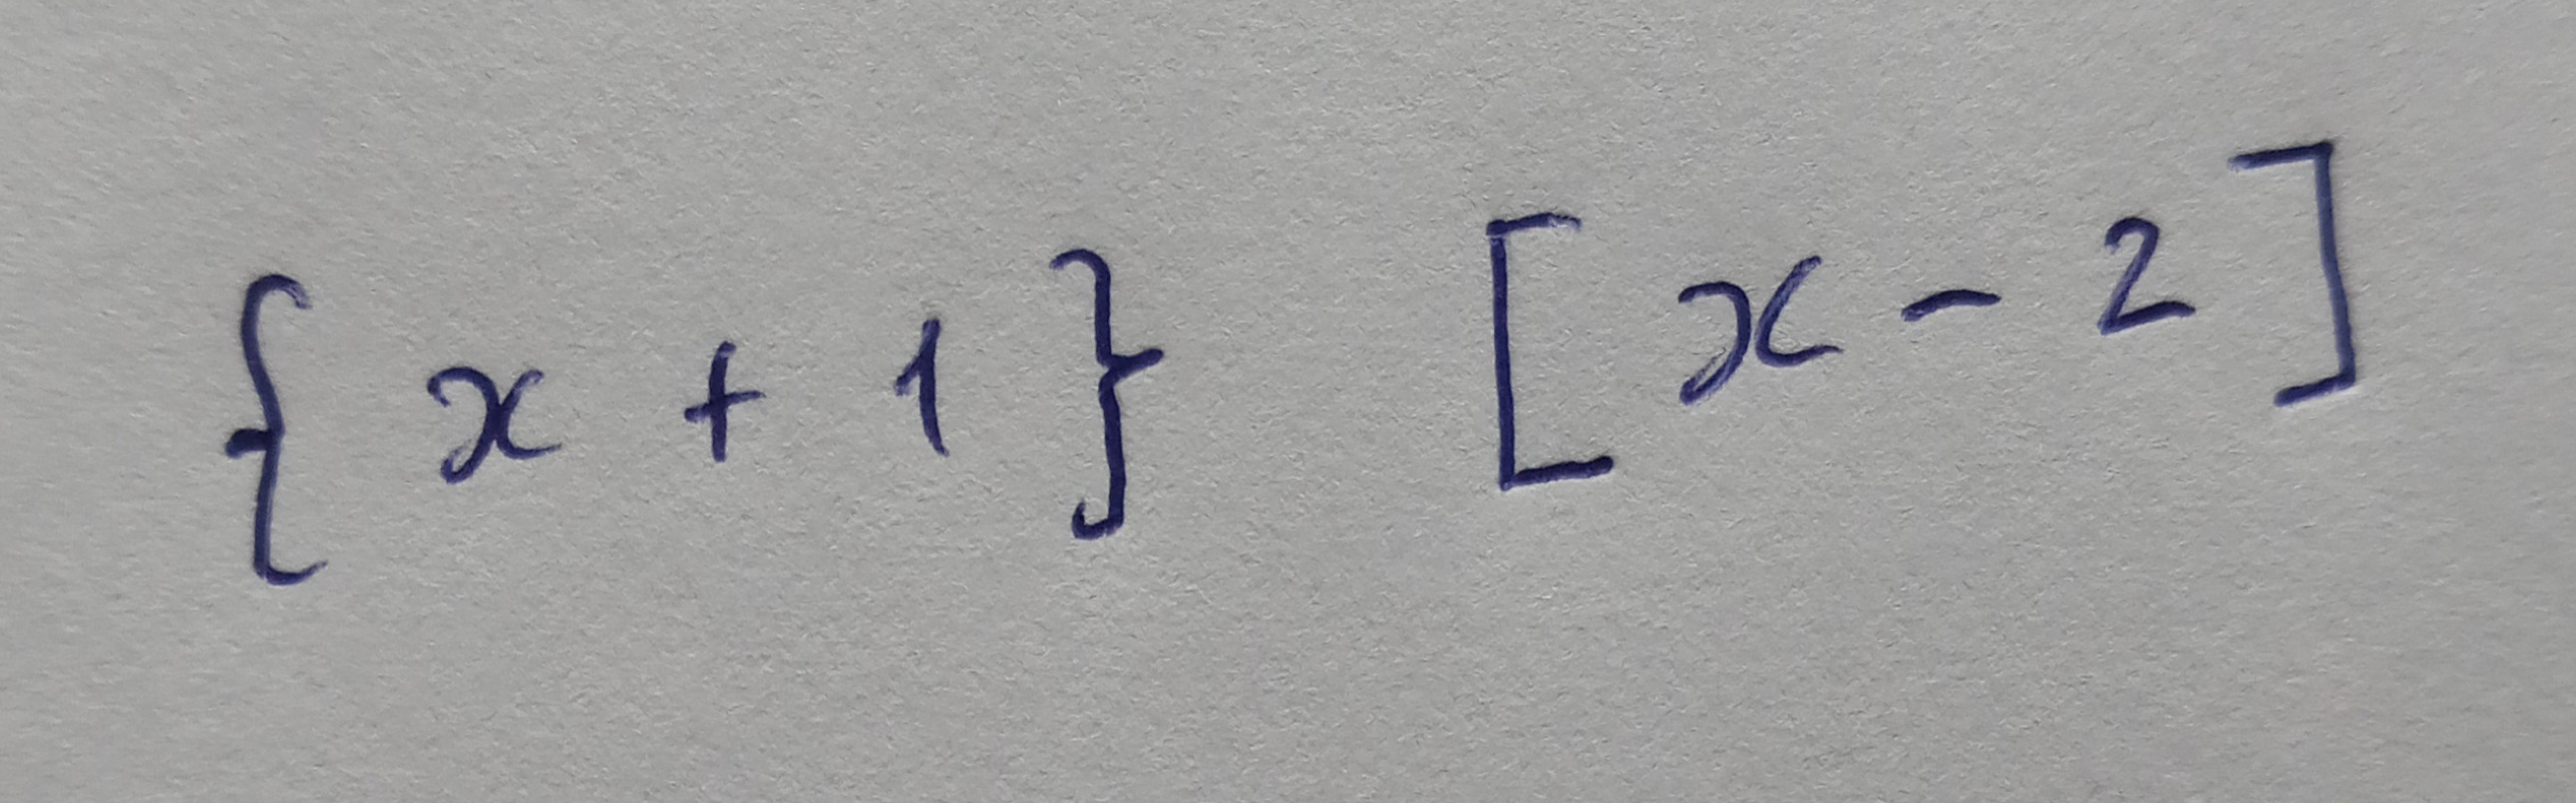 { x + 1 } [ x - 2 ]